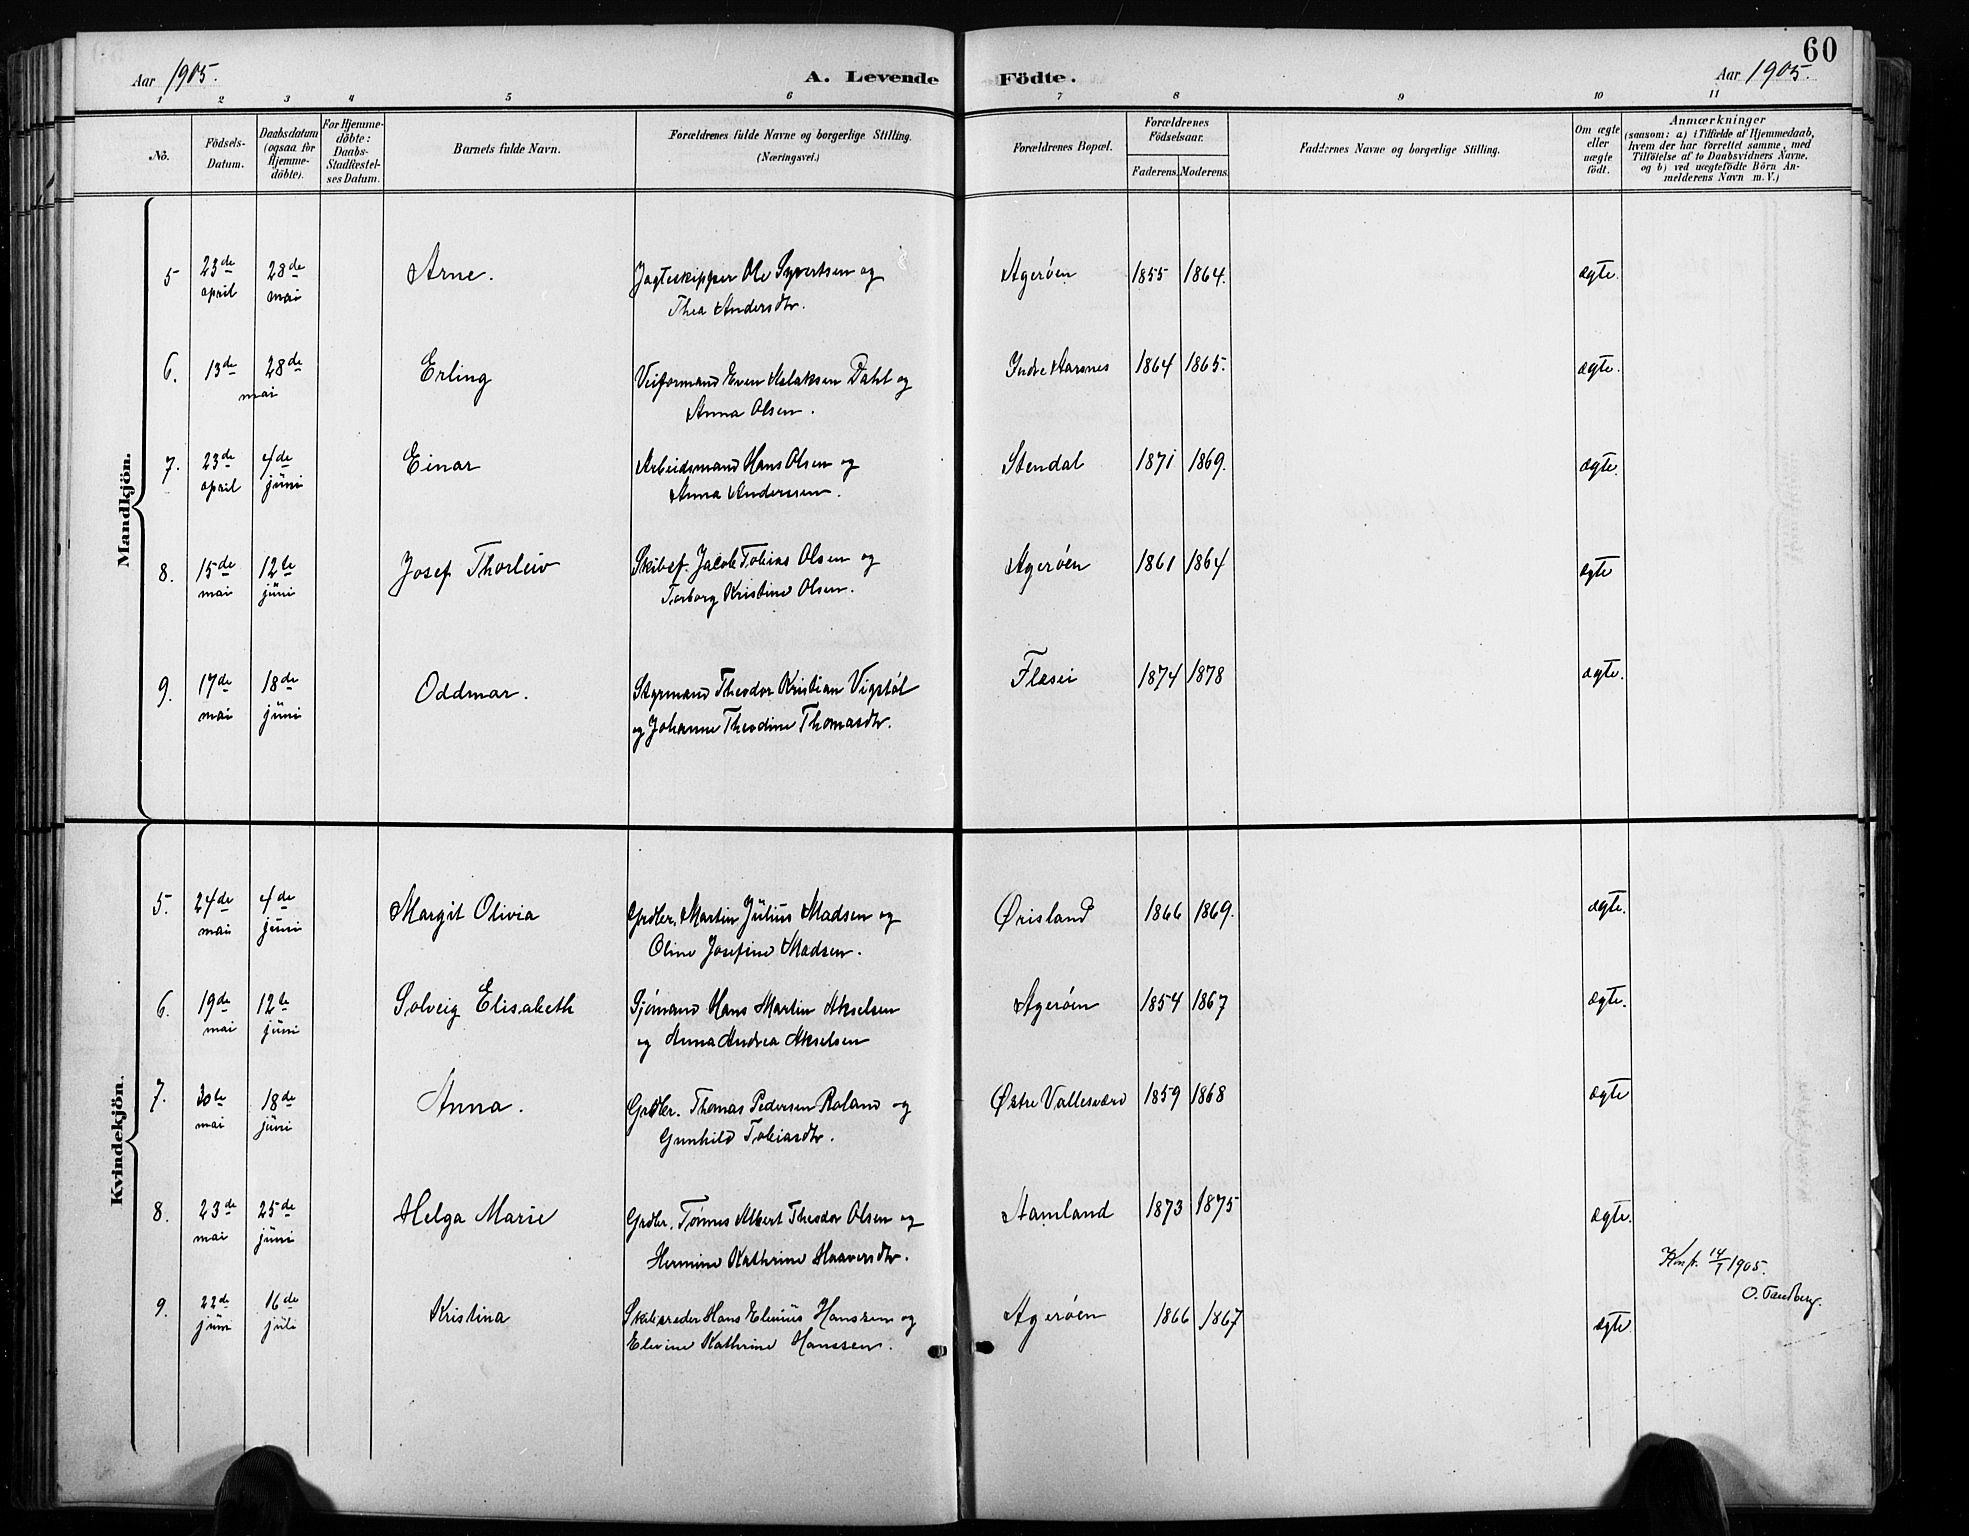 60
Aar 1905. A. Levende Födte. Aar 1905.
1 2 3 4 5 6 7 8 9 10 11
No. Födsels-Datum. Daabsdatum (ogsaa for Hjemme-döbte). For Hjemme-döbte: Daabs-Stadfæstel-ses Datum. Barnets fulde Navn. Forældrenes fulde Navne og borgerlige Stilling. (Næringsvei.) Forældrenes Bopæl. Forældrenes Födselsaar. Faderens. Moderens. Faddernes Navne og borgerlige Stilling. Om ægte eller uægte födt. Anmærkninger (saasom: a) i Tilfælde af Hjemmedaab, hvem der har forrettet samme, med Tilföielse af to Daabsvidners Navne, og b) ved uægtefödte Börn An-melderens Navn m. V.)
Mandkjön.
5 23de april 28de mai Arne. Jagteskipper Ole Syvertsen og Agerøen 1855 1864. ægte.
Thea Andersdtr.
6. 13de 28de mai Erling Veiformand Even Aslaksen Dahl og Indre Aarsnes 1864 1865. ægte.
Anna Olsen.
7. 23de april 4de juni Einar Arbeidsmand Hans Olsen og Stendal 1871 1869. ægte.
Anna Anderssen.
8. 15de mai 12te juni Josef Thorleiv Skibsf. Jacob Tobias Olsen og Agerøen 1861 1864 ægte
Torborg Kristine Olsen.
9. 17de mai 18de juni Oddmar. Styrmand Theodor Kristian Vigstøl 1874 1878 ægte.
og Johanne Theodine Thomasdtr.
Kvindekjön.
5. 24de mai 4de juni Margit Olivia Grdbr. Martin Julius Madsen og Ørisland 1866 1869. ægte.
Oline Josefine Madsen.
6. 19de mai 12te juni Solveig Elisabeth Sjömand Hans Martin Akselsen Agerøen 1854 1867 ægte.
og Anna Andrea Akselsen
7. 30te mai 18de juni Anna. Grdbr. Thomas Pedersen Roland og Østre Vallesværd 1859 1868 ægte
Gunhild Tobiasdtr.
8. 23de mai 25de juni Helga Marie Grdbr. Tønnes Albert Theodor Olsen og Aamland 1873 1875 ægte.
Hermine Kathrine Haaversdtr.
Konf. 14/7 1905.
O. Tandberg.
9. 22de juni 16de juli Kristina Skibsreder Hans Elenius Hanssen og Agerøen 1866 1867 ægte
Elevine Kathrine Hanssen.